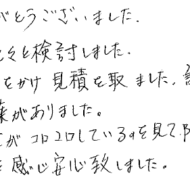 がとうございました.
々と検討しました.
をかけ 見積を取 ました.
葉がありました。
が コロコロしているのを見て
感じ 安心致しました。